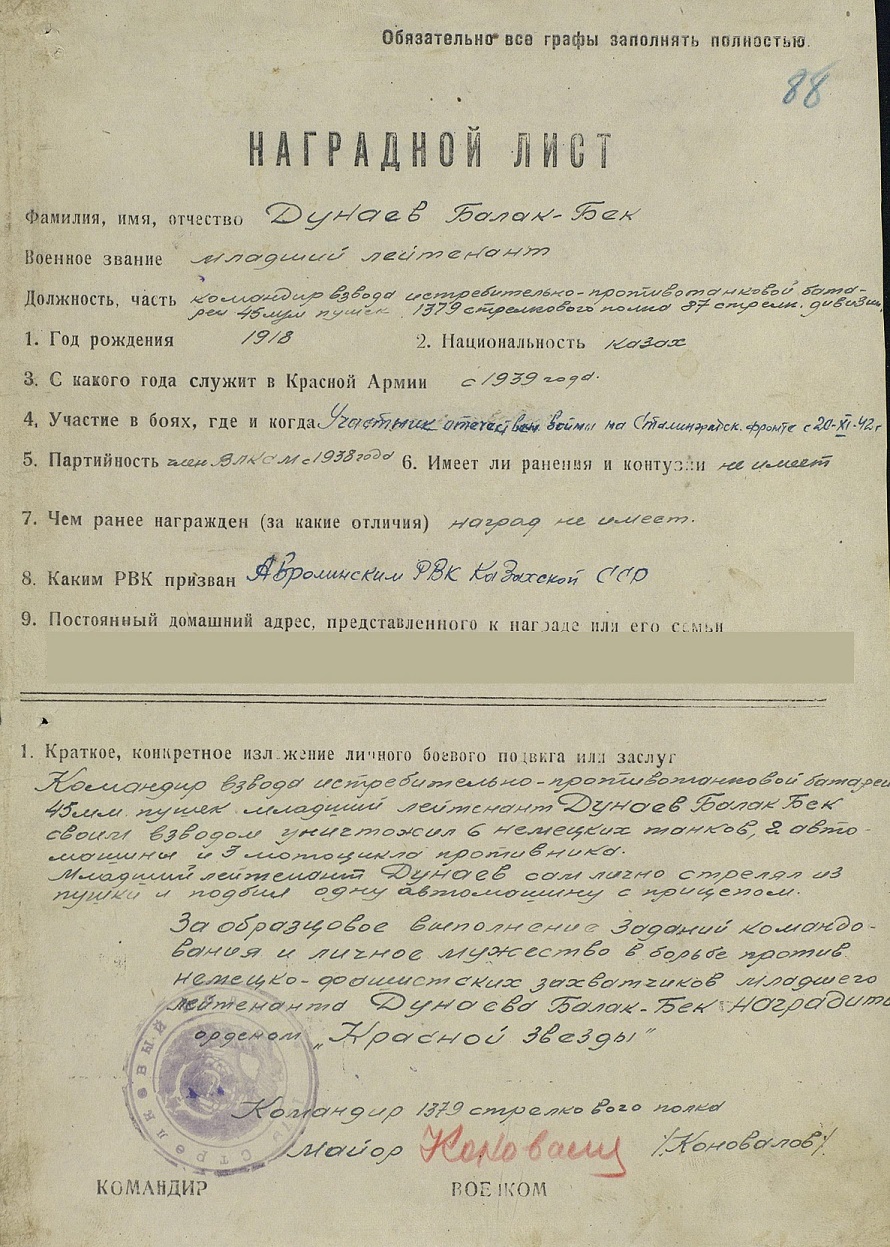 Обязательно все графы заполнять полностью.
88
НАГРАДНОЙ ЛИСТ
Фамилия, имя, отчество Дунаев Балак-Бек
Военное звание младший лейтенант
Должность, часть командир взвода истребительно-противотанковой бата-
реи 45мм пушек 1379 стрелкового полка 87 стрелк. дивизии
1. Год рождения 1918 2. Национальность казах
3. С какого года служит в Красной Армии с 1939 года.
4. Участие в боях, где и когда Участник отечествен войны на Сталинградск. фронте с 20-XI-42г
5. Партийность член ВЛКСМ с 1938 года 6. Имеет ли ранения и контузии не имеет
7. Чем ранее награжден (за какие отличия) наград не имеет.
8. Каким РВК призван РВК Казахской ССР
9. Постоянный домашний адрес, представленного к награде или его семьи
1. Краткое, конкретное изложение личного боевого подвига или заслуг
Командир взвода истребительно-противотанковой батареи
45мм. пушек младший лейтенант Дунаев Балак Бек
своим взводом уничтожил 6 немецких танков, 2 авто-
машины и 3 мотоцикла противника.
Младший лейтенант Дунаев сам лично стрелял из
пушки и подбил одну автомашину с прицепом.
За образцовое выполнение заданий командо-
вания и личное мужество в борьбе против
немецко-фашистских захватчиков младшего
лейтенанта Дунаева Балак-Бек наградить
орденом „Красной Звезды"
Командир 1379 стрелкового полка
Майор Коновалов /Коновалов/
КОМАНДИР ВОЕНКОМ